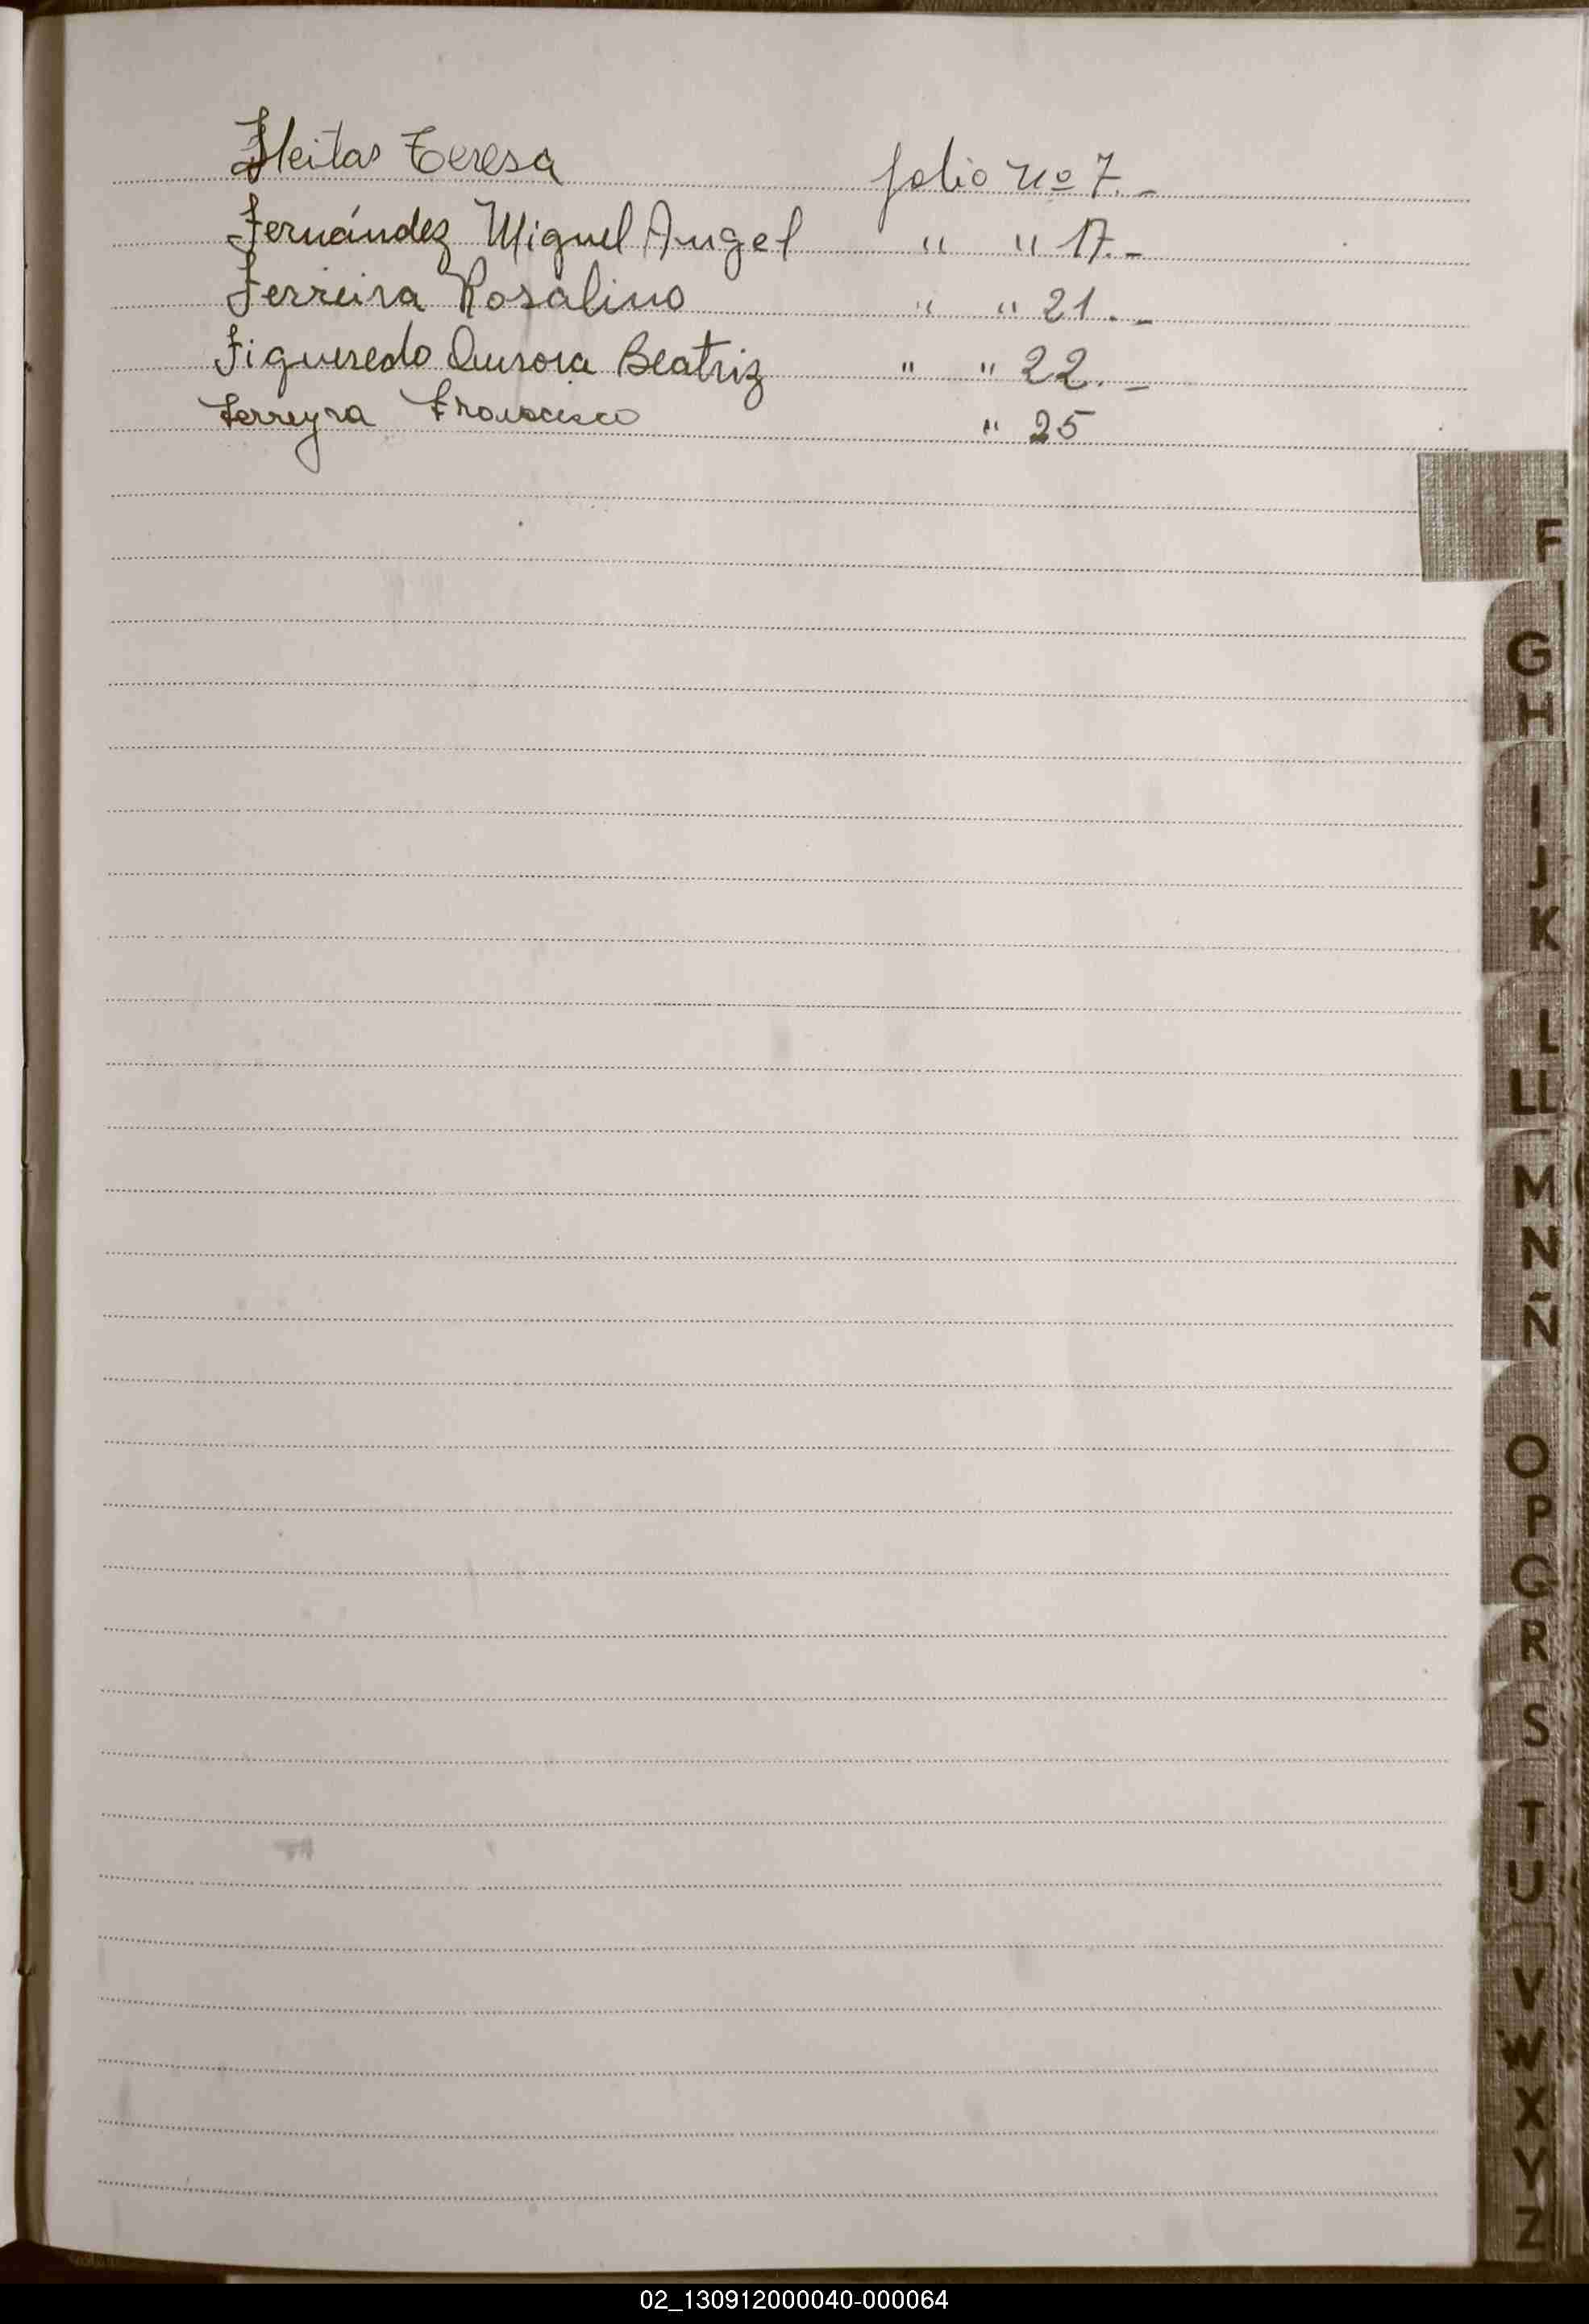 Fleitas Teresa folio no 7.-
Fernández Miguel Angel " " 17.-
Ferreira Rosalino " " 21.-
Figueredo Aurora Beatriz " " 22.-
Ferreyra Francisco " 25
F
G
H
I
J
K
L
LL
M
N
Ñ
O
P
Q
R
S
T
U
V
W
X
Y
Z
02_130912000040-000064